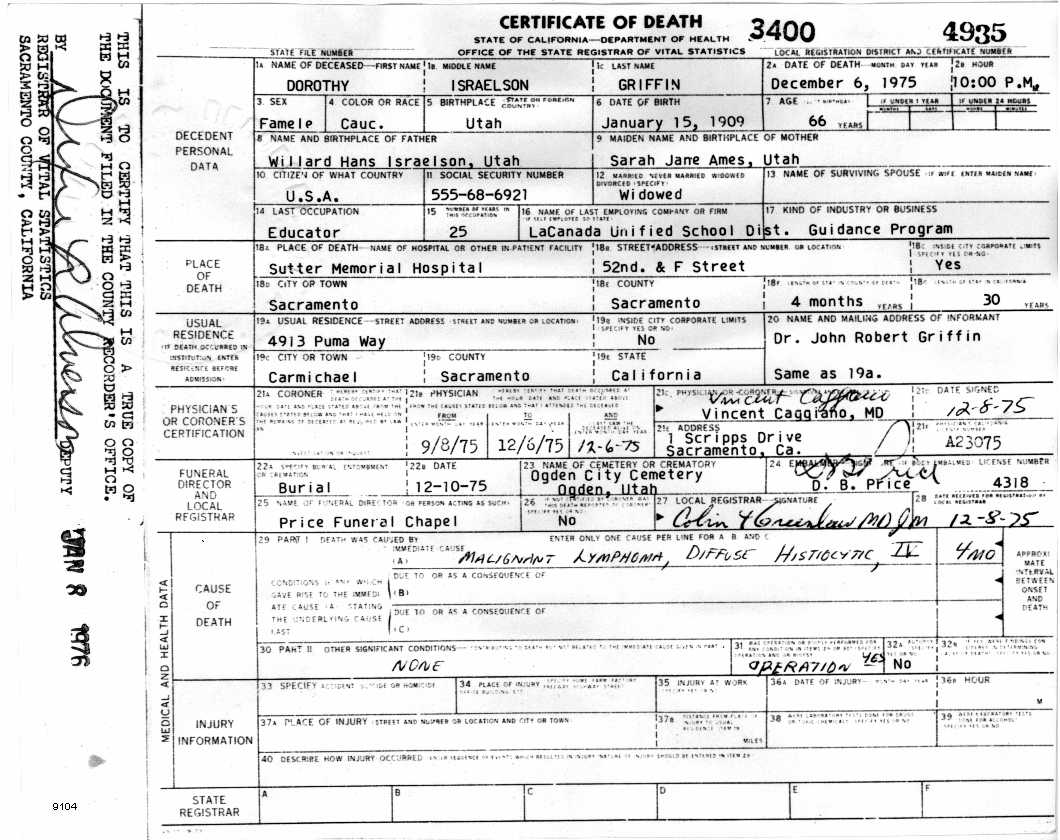 CERTIFICATE OF DEATH
3400
4935
STATE OF CALIFORNIA—DEPARTMENT OF HEALTH
OFFICE OF THE STATE REGISTRAR OF VITAL STATISTICS
STATE FILE NUMBER
LOCAL REGISTRATION DISTRICT AND CERTIFICATE NUMBER
THIS IS TO CERTIFY THAT THIS IS A TRUE COPY OF
THE DOCUMENT FILED IN THE COUNTY RECORDER'S OFFICE.
BY DEPUTY
REGISTRAR OF VITAL STATISTICS
SACRAMENTO COUNTY, CALIFORNIA
JAN 8 1976
9104
DECEDENT PERSONAL DATA
1A NAME OF DECEASED—FIRST NAME
DOROTHY
1B MIDDLE NAME
ISRAELSON
1C LAST NAME
GRIFFIN
2A DATE OF DEATH—MONTH DAY YEAR
December 6, 1975
2B HOUR
10:00 P.M.
3. SEX
Famele
4 COLOR OR RACE
Cauc.
5 BIRTHPLACE (STATE OR FOREIGN COUNTRY)
Utah
6 DATE OF BIRTH
January 15, 1909
7 AGE
66 YEARS
IF UNDER 1 YEAR
MONTHS DAYS
IF UNDER 24 HOURS
HOURS MINUTES
8 NAME AND BIRTHPLACE OF FATHER
Willard Hans Israelson, Utah
9 MAIDEN NAME AND BIRTHPLACE OF MOTHER
Sarah Jane Ames, Utah
10 CITIZEN OF WHAT COUNTRY
U.S.A.
11 SOCIAL SECURITY NUMBER
555-68-6921
12 MARRIED NEVER MARRIED WIDOWED DIVORCED (SPECIFY)
Widowed
13 NAME OF SURVIVING SPOUSE (IF WIFE, ENTER MAIDEN NAME)
14 LAST OCCUPATION
Educator
15 NUMBER OF YEARS IN THIS OCCUPATION
25
16 NAME OF LAST EMPLOYING COMPANY OR FIRM (IF SELF EMPLOYED SO STATE)
LaCanada Unified School Dist.
17 KIND OF INDUSTRY OR BUSINESS
Guidance Program
PLACE OF DEATH
18A PLACE OF DEATH—NAME OF HOSPITAL OR OTHER IN-PATIENT FACILITY
Sutter Memorial Hospital
18B STREET ADDRESS—(STREET AND NUMBER, OR LOCATION)
52nd. & F Street
18C INSIDE CITY CORPORATE LIMITS (SPECIFY YES OR NO)
Yes
18D CITY OR TOWN
Sacramento
18E COUNTY
Sacramento
18F LENGTH OF STAY IN COUNTY OF DEATH
4 months YEARS
LENGTH OF STAY IN CALIFORNIA
30 YEARS
USUAL RESIDENCE
(IF DEATH OCCURRED IN INSTITUTION, ENTER RESIDENCE BEFORE ADMISSION)
19A USUAL RESIDENCE—STREET ADDRESS (STREET AND NUMBER OR LOCATION)
4913 Puma Way
19B INSIDE CITY CORPORATE LIMITS (SPECIFY YES OR NO)
No
20 NAME AND MAILING ADDRESS OF INFORMANT
Dr. John Robert Griffin
Same as 19a.
19C CITY OR TOWN
Carmichael
19D COUNTY
Sacramento
19E STATE
California
PHYSICIAN'S OR CORONER'S CERTIFICATION
21A CORONER
21B PHYSICIAN
FROM
9/8/75
TO
12/6/75
AND
12-6-75
21C PHYSICIAN OR CORONER
Vincent Caggiano
Vincent Caggiano, MD
DATE SIGNED
12-8-75
21E ADDRESS
1 Scripps Drive
Sacramento, Ca.
A23075
FUNERAL DIRECTOR AND LOCAL REGISTRAR
22A SPECIFY BURIAL ENTOMBMENT OR CREMATION
Burial
22B DATE
12-10-75
23 NAME OF CEMETERY OR CREMATORY
Ogden City Cemetery
Ogden, Utah
24 EMBALMER LICENSE NUMBER
D. B. Price
4318
25 NAME OF FUNERAL DIRECTOR (OR PERSON ACTING AS SUCH)
Price Funeral Chapel
26
No
27 LOCAL REGISTRAR—SIGNATURE
28 DATE RECEIVED FOR REGISTRATION BY LOCAL REGISTRAR
12-8-75
MEDICAL AND HEALTH DATA
CAUSE OF DEATH
29 PART I DEATH WAS CAUSED BY
ENTER ONLY ONE CAUSE PER LINE FOR A, B, AND C
IMMEDIATE CAUSE
(A) MALIGNANT LYMPHOMA, DIFFUSE HISTIOCYTIC, IV
4 MO
CONDITIONS IF ANY WHICH GAVE RISE TO THE IMMEDIATE CAUSE (A) STATING THE UNDERLYING CAUSE LAST
DUE TO OR AS A CONSEQUENCE OF
(B)
DUE TO OR AS A CONSEQUENCE OF
(C)
APPROXIMATE INTERVAL BETWEEN ONSET AND DEATH
30 PART II OTHER SIGNIFICANT CONDITIONS
NONE
31
OPERATION YES
32A AUTOPSY
No
32B
INJURY INFORMATION
33 SPECIFY ACCIDENT SUICIDE OR HOMICIDE
34 PLACE OF INJURY
35 INJURY AT WORK
36A DATE OF INJURY—MONTH DAY YEAR
36B HOUR
M
37A PLACE OF INJURY (STREET AND NUMBER OR LOCATION AND CITY OR TOWN)
37B
MILES
38
39
40 DESCRIBE HOW INJURY OCCURRED
STATE REGISTRAR
A
B
C
D
E
F